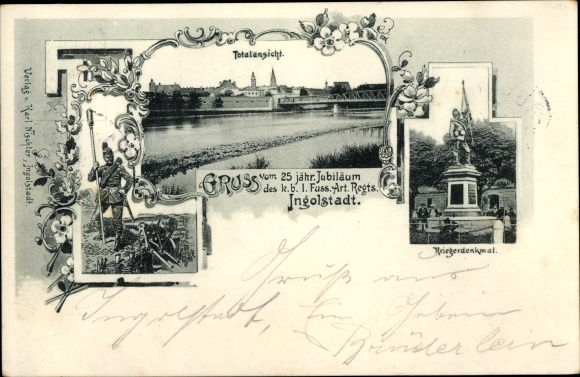 Totalansicht.
Gruss vom 25 jähr. Jubiläum
des k. b. 1. Fuss.-Art. Regts.
Ingolstadt.
Kriegerdenkmal.
Verlag v. Karl Mechler, Ingolstadt
Gruß aus
Ingolstadt, Ein
Brüderlein